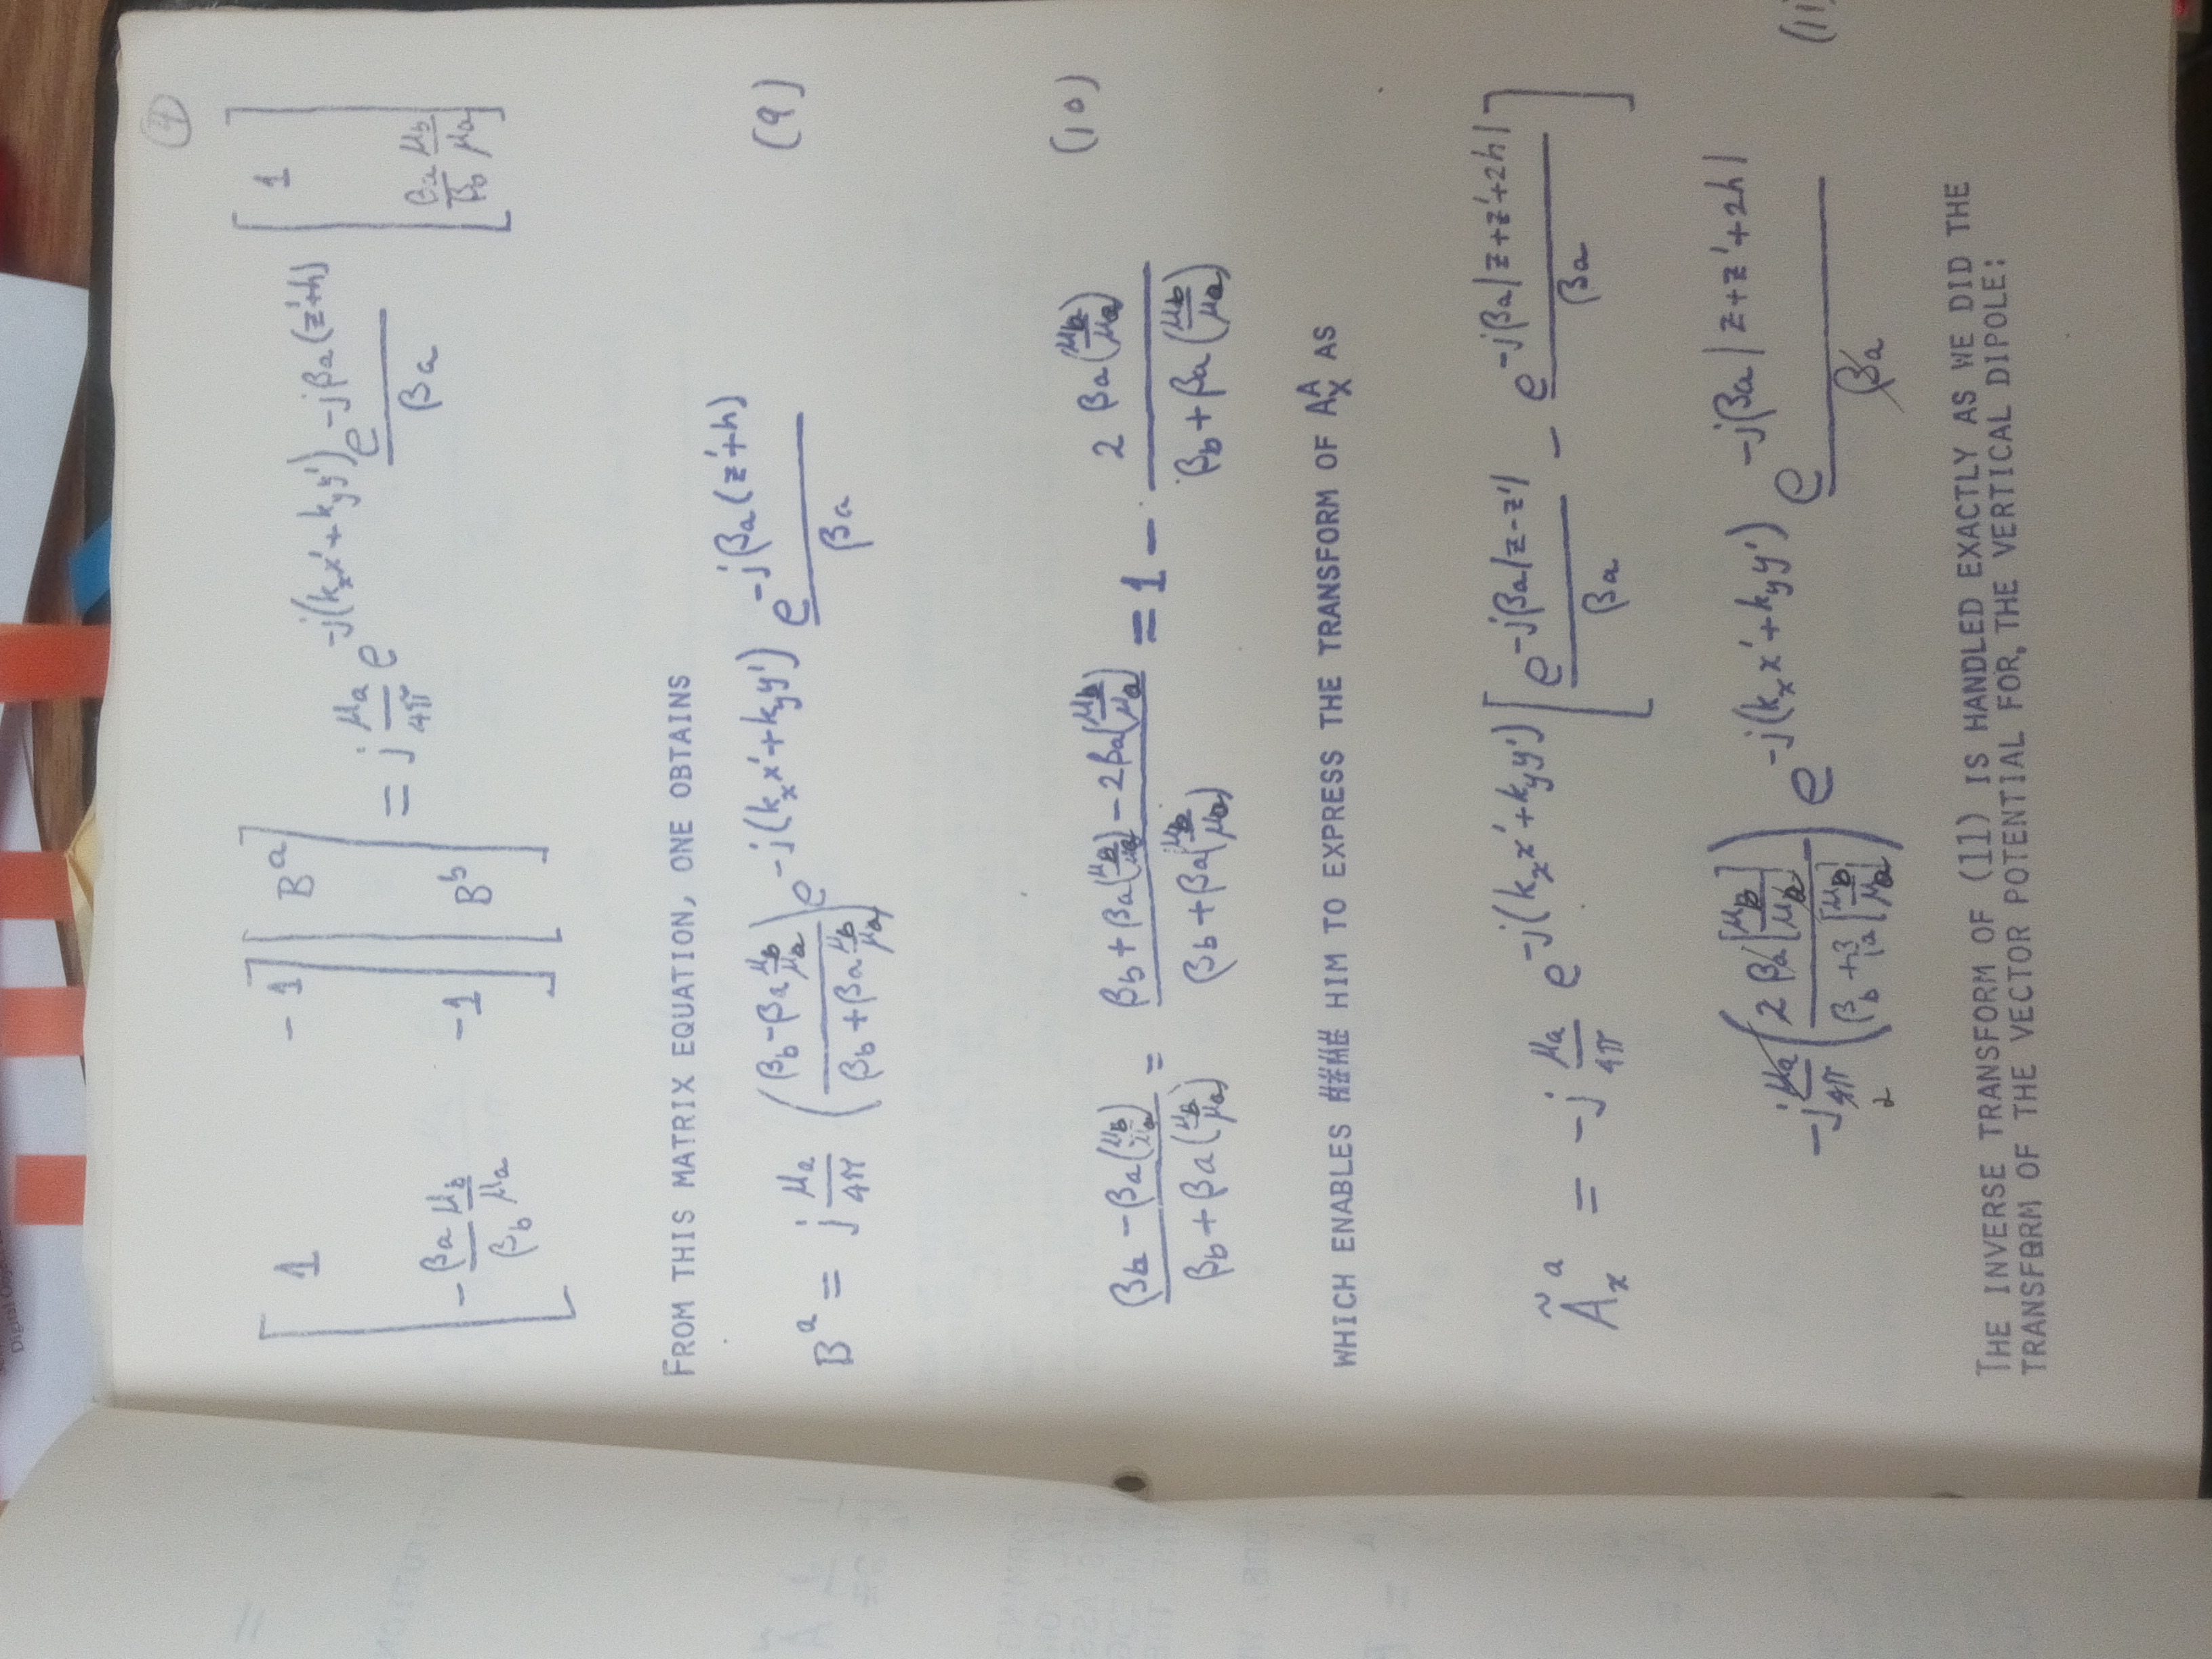 (4)
[ 1 -1 ; -βa/βb μb/μa -1 ] [ Bᵃ ; Bᵇ ] = j μa/4π e^-j(kₓx'+k_yy') e^-jβa(z'+h)/βa [ 1 ; βa/βb μb/μa ]
FROM THIS MATRIX EQUATION, ONE OBTAINS
Bᵃ = j μa/4π ( (βb-βa μb/μa)/(βb+βa μb/μa) ) e^-j(kₓx'+k_yy') e^-jβa(z'+h)/βa (9)
(βb-βa(μb/μa))/(βb+βa(μb/μa)) = (βb+βa(μb/μa)-2βa(μb/μa))/(βb+βa(μb/μa)) = 1 - 2βa(μb/μa)/(βb+βa(μb/μa)) (10)
WHICH ENABLES #### HIM TO EXPRESS THE TRANSFORM OF Aₓᴬ AS
Ãₓᵃ = -j μa/4π e^-j(kₓx'+k_yy') [ e^-jβa|z-z'|/βa - e^-jβa|z+z'+2h|/βa ]
-j μa/4π 2 ( 2βa[μb/μa]/(βb+βa[μb/μa]) ) e^-j(kₓx'+k_yy') e^-jβa|z+z'+2h|/βa (11)
THE INVERSE TRANSFORM OF (11) IS HANDLED EXACTLY AS WE DID THE
TRANSFORM OF THE VECTOR POTENTIAL FOR, THE VERTICAL DIPOLE: